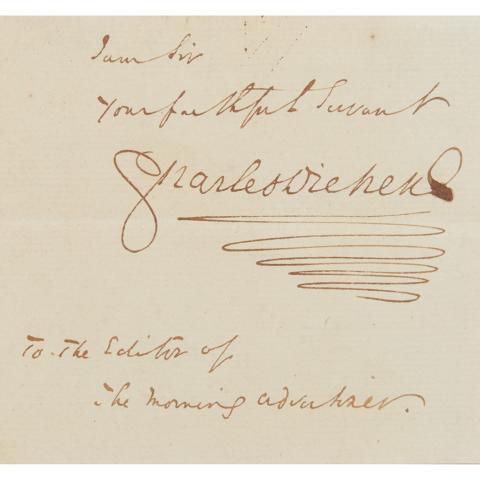 I am Sir
Your faithful Servant
Charles Dickens
To The Editor of
The Morning Advertiser.